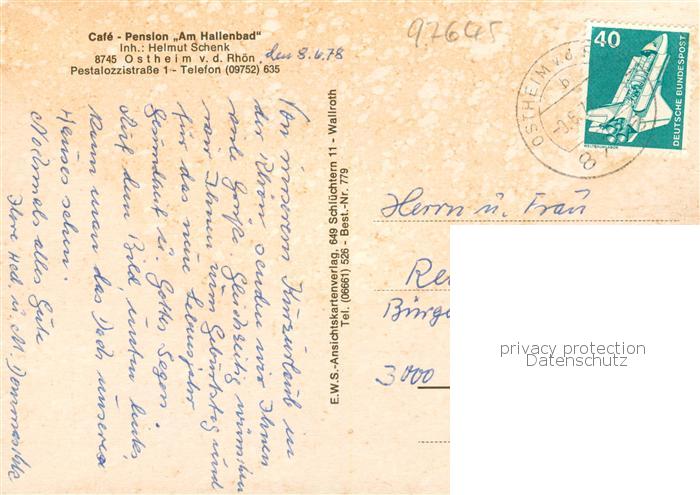 Café - Pension „Am Hallenbad"
Inh.: Helmut Schenk
8745 Ostheim v. d. Rhön,
Pestalozzistraße 1 - Telefon (09752) 635
den 8.6.78
Von unserem Kurzurlaub in
der Rhön senden wir Ihnen
viele Grüße. Gleichzeitig wünschen
wir Ihnen zum Geburtstag und
für das neue Lebensjahr
Gesundheit u. Gottes Segen.
Auf dem Bild unten links
kann man das Dach unseres
Hauses sehen.
Nochmals alles Gute
Ihre Hed. u. M.
E.W.S.-Ansichtskartenverlag, 649 Schlüchtern 11 - Wallroth
Tel. (06661) 526 - Best.-Nr. 779
97645
40
DEUTSCHE BUNDESPOST
WELTRAUMLABOR
OSTHEIM v. d.
b
Herrn u. Frau
Re
Bürge
3000
privacy protection
Datenschutz